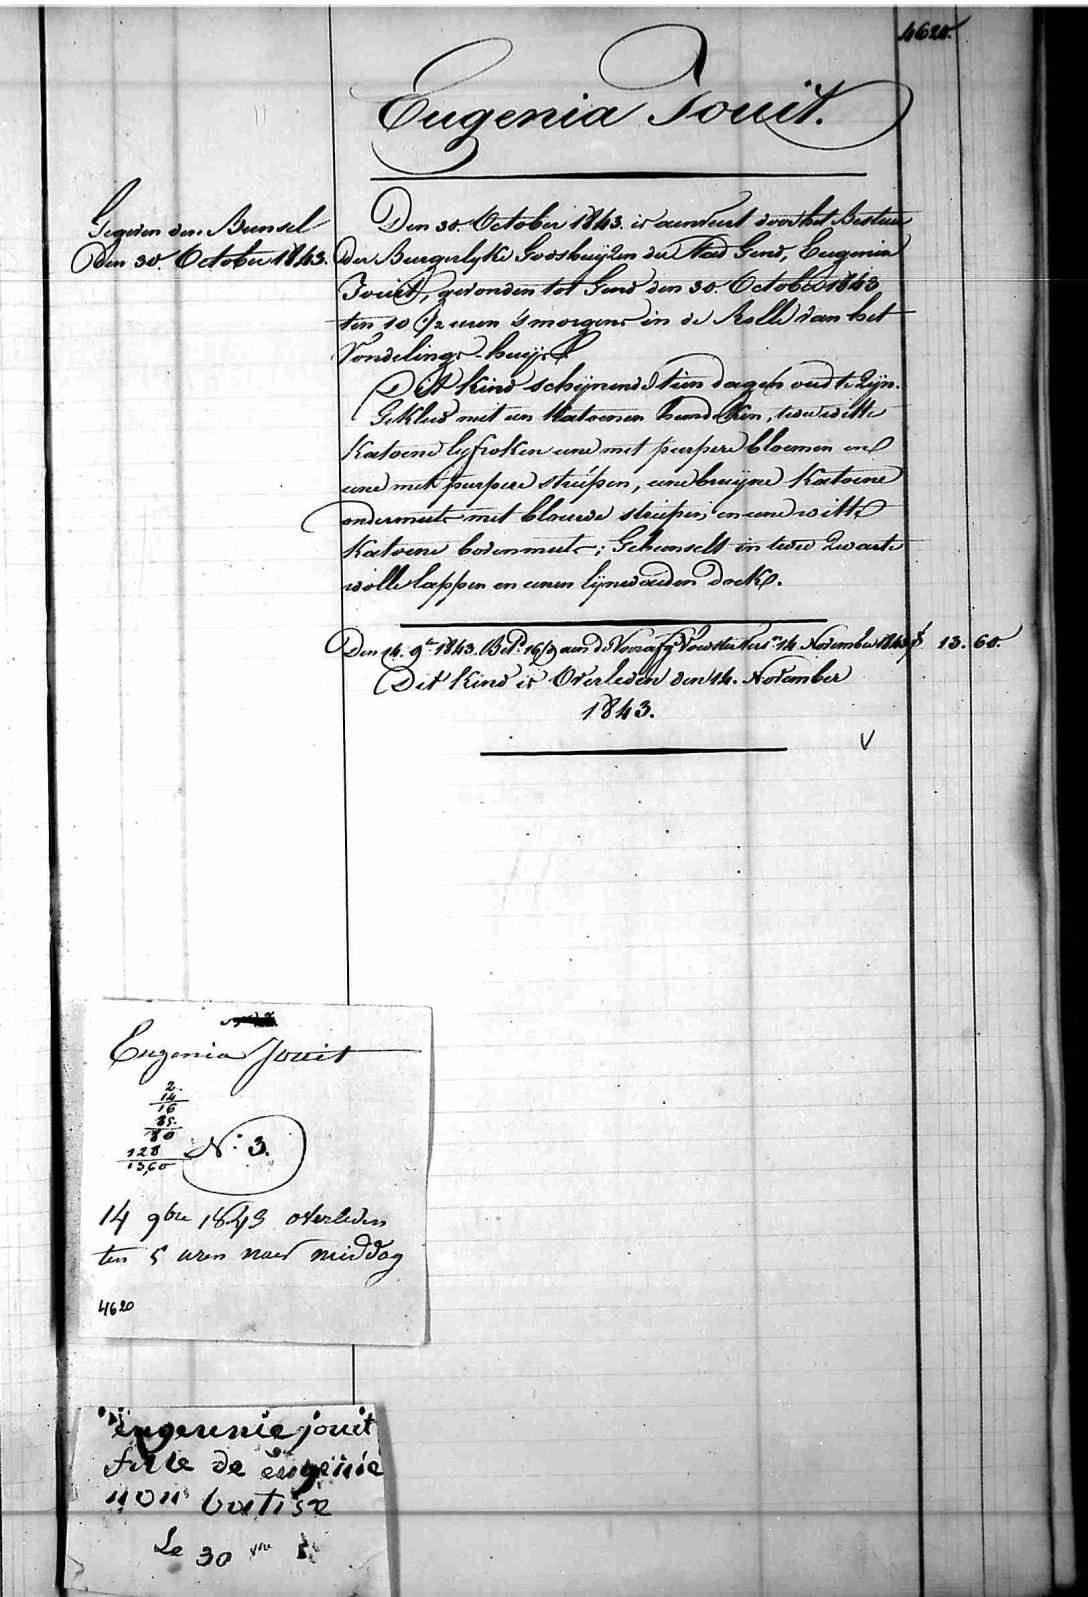 4620.
Eugenia Jouit.
Gegeven den Bunsel
den 30. October 1843.
Den 30. October 1843. is aenveert door het Bestuur
der Burgerlyke Godshuijzen der Stad Gend, Eugenia
Jouit, gevonden tot Gend den 30. October 1843
ten 10 1/2 uren 's morgens in de Rolle van het
Vondelings-huijs.
Dit kind schijnende tien dagen oud te zijn.
Gekleed met een katoenen hemdeken, twee witte
katoene lyfroken eene met purpere bloemen en
eene met purpere striepen, eene bruijne katoene
ondermuts met blauwe striepen en eene witte
katoene bovenmuts; Gebunselt in twee zwarte
wolle lappen en eenen lijnwaeden doek.
Den 14. 9re 1843. Bet. 16/3 aen de Voorafg. Voedsters 14 November 1843 f 13.60.
Dit kind is Overleden den 14. November
1843.
V
Eugenia Jouit
2.
14
16
85.
80
128
13,60
N: 3.
14 9bre 1843 overleden
ten 5 uren naer middag
4620
eugeunie jouit
fille de eugenie
non batise
Le 30